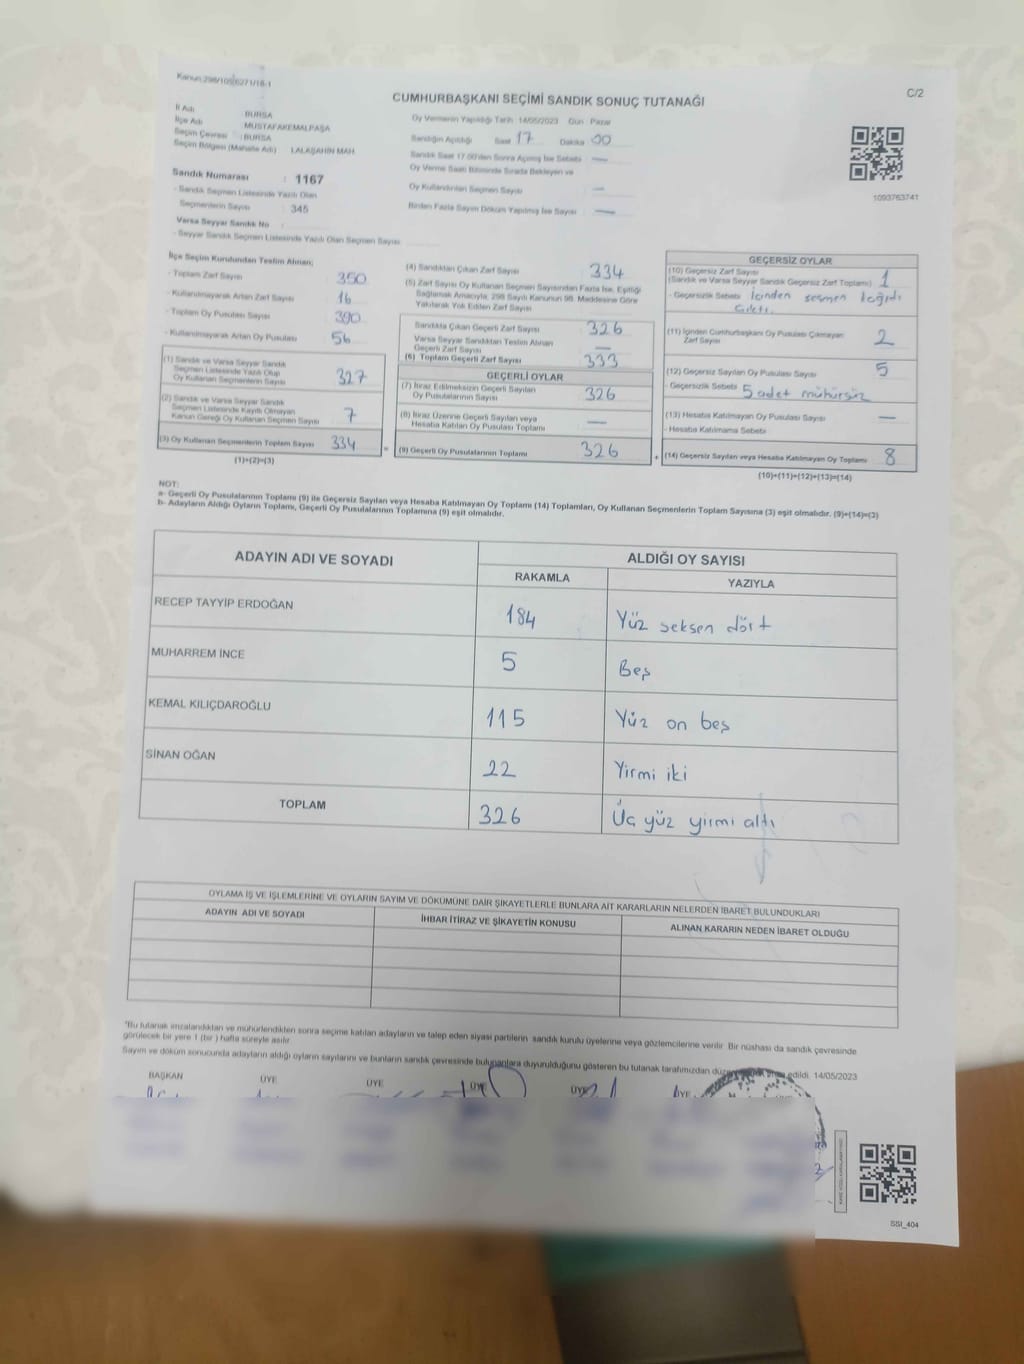 Kanun:298/105,6271/18-1
CUMHURBAŞKANI SEÇİMİ SANDIK SONUÇ TUTANAĞI
C/2
İl Adı : BURSA
İlçe Adı : MUSTAFAKEMALPAŞA
Seçim Çevresi : BURSA
Seçim Bölgesi (Mahalle Adı) LALAŞAHİN MAH.
Oy Vermenin Yapıldığı Tarih :14/05/2023 Gün :Pazar
Sandığın Açıldığı Saat 17 Dakika 00
Sandık Saat 17.00'den Sonra Açılmış İse Sebebi —
Oy Verme Saati Bitiminde Sırada Bekleyen ve
Oy Kullandırılan Seçmen Sayısı —
Birden Fazla Sayım Döküm Yapılmış İse Sayısı —
1093763741
Sandık Numarası : 1167
- Sandık Seçmen Listesinde Yazılı Olan
Seçmenlerin Sayısı : 345
Varsa Seyyar Sandık No :
- Seyyar Sandık Seçmen Listesinde Yazılı Olan Seçmen Sayısı
İlçe Seçim Kurulundan Teslim Alınan;
- Toplam Zarf Sayısı 350
- Kullanılmayarak Artan Zarf Sayısı 16
- Toplam Oy Pusulası Sayısı 390
- Kullanılmayarak Artan Oy Pusulası 56
(1) Sandık ve Varsa Seyyar Sandık
Seçmen Listesinde Yazılı Olup
Oy Kullanan Seçmenlerin Sayısı 327
(2) Sandık ve Varsa Seyyar Sandık
Seçmen Listesinde Kayıtlı Olmayan
Kanun Gereği Oy Kullanan Seçmen Sayısı 7
(3) Oy Kullanan Seçmenlerin Toplam Sayısı 334
(1)+(2)=(3)
(4) Sandıktan Çıkan Zarf Sayısı 334
(5) Zarf Sayısı Oy Kullanan Seçmen Sayısından Fazla İse, Eşitliği
Sağlamak Amacıyla; 298 Sayılı Kanunun 98. Maddesine Göre
Yakılarak Yok Edilen Zarf Sayısı
Sandıkta Çıkan Geçerli Zarf Sayısı 326
Varsa Seyyar Sandıktan Teslim Alınan
Geçerli Zarf Sayısı —
(6) Toplam Geçerli Zarf Sayısı 333
GEÇERLİ OYLAR
(7) İtiraz Edilmeksizin Geçerli Sayılan
Oy Pusulalarının Sayısı 326
(8) İtiraz Üzerine Geçerli Sayılan veya
Hesaba Katılan Oy Pusulası Toplamı —
= (9) Geçerli Oy Pusulalarının Toplamı 326
GEÇERSİZ OYLAR
(10) Geçersiz Zarf Sayısı
(Sandık ve Varsa Seyyar Sandık Geçersiz Zarf Toplamı) 1
- Geçersizlik Sebebi İçinden seçmen kağıdı
(11) İçinden Cumhurbaşkanı Oy Pusulası Çıkmayan
Zarf Sayısı 2
(12) Geçersiz Sayılan Oy Pusulası Sayısı 5
- Geçersizlik Sebebi 5 adet mühürsüz
(13) Hesaba Katılmayan Oy Pusulası Sayısı —
- Hesaba Katılmama Sebebi
+ (14) Geçersiz Sayılan veya Hesaba Katılmayan Oy Toplamı 8
(10)+(11)+(12)+(13)=(14)
NOT:
a- Geçerli Oy Pusulalarının Toplamı (9) ile Geçersiz Sayılan veya Hesaba Katılmayan Oy Toplamı (14) Toplamları, Oy Kullanan Seçmenlerin Toplam Sayısına (3) eşit olmalıdır. (9)+(14)=(3)
b- Adayların Aldığı Oyların Toplamı, Geçerli Oy Pusulalarının Toplamına (9) eşit olmalıdır.
ADAYIN ADI VE SOYADI
ALDIĞI OY SAYISI
RAKAMLA YAZIYLA
RECEP TAYYİP ERDOĞAN 184 Yüz seksen dört
MUHARREM İNCE 5 Beş
KEMAL KILIÇDAROĞLU 115 Yüz on beş
SİNAN OĞAN 22 Yirmi iki
TOPLAM 326 Üç yüz yirmi altı
OYLAMA İŞ VE İŞLEMLERİNE VE OYLARIN SAYIM VE DÖKÜMÜNE DAİR ŞİKAYETLERLE BUNLARA AİT KARARLARIN NELERDEN İBARET BULUNDUKLARI
ADAYIN ADI VE SOYADI İHBAR İTİRAZ VE ŞİKAYETİN KONUSU ALINAN KARARIN NEDEN İBARET OLDUĞU
*Bu tutanak imzalandıktan ve mühürlendikten sonra seçime katılan adayların ve talep eden siyasi partilerin sandık kurulu üyelerine veya gözlemcilerine verilir. Bir nüshası da sandık çevresinde
görülecek bir yere 1 (bir ) hafta süreyle asılır.
Sayım ve döküm sonucunda adayların aldığı oyların sayılarını ve bunların sandık çevresinde bulunanlara duyurulduğunu gösteren bu tutanak tarafımızdan edildi. 14/05/2023
BAŞKAN ÜYE ÜYE ÜYE ÜYE ÜYE
SSI_404